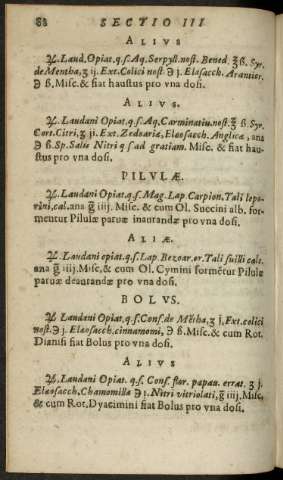 88 SECTIO III
ALIUS
℞. Laud. Opiat. q. s. Aq. Serpyll. nost. Bened. ℥ ß. Syr.
de Mentha, ʒ ij. Ext. Colici nost ℈ j. Elæosacch. Arantior.
℈ ß. Misc. & fiat haustus pro vna dosi.
ALIVS.
℞. Laudani Opiat. q. s. Aq. Carminatiu. nost. ℥ ß. Syr.
Cort. Citri, ʒ ij. Ext. Zedoariæ, Elæosacch. Anglicæ, ana
℈ ß. Sp. Salis Nitri q s ad gratiam. Misc. & fiat hau-
stus pro vna dosi.
PILVLÆ.
℞. Laudani Opiat. q. s. Mag. Lap. Carpion. Tali lepo-
rini, cal. ana g̃ iij. Misc. & cum Ol. Succini alb. for-
mentur Pilulæ paruæ inaurandæ pro vna dosi.
ALIÆ.
℞. Laudani opiat. q. s. Lap. Bezoar. or. Tali suilli calc.
ana g̃ iiij. Misc, & cum Ol. Cymini formẽtur Pilulæ
paruæ deaurandæ pro vna dosi.
BOLVS.
℞ Laudani Opiat. q. s. Cons. de Mẽtha, ʒ j, Ext. colici
nost. ℈ j. Elæosacch. cinnamomi, ℈ ß. Misc. & cum Rot.
Dianisi fiat Bolus pro vna dosi.
ALIVS
℞. Laudani Opiat. q. s. Cons. flor. papau. errat. ʒ j.
Elæosacch. Chamomillæ ℈ j. Nitri vitriolati, g̃ iiij. Misc.
& cum Rot. Dyacimini fiat Bolus pro vna dosi.